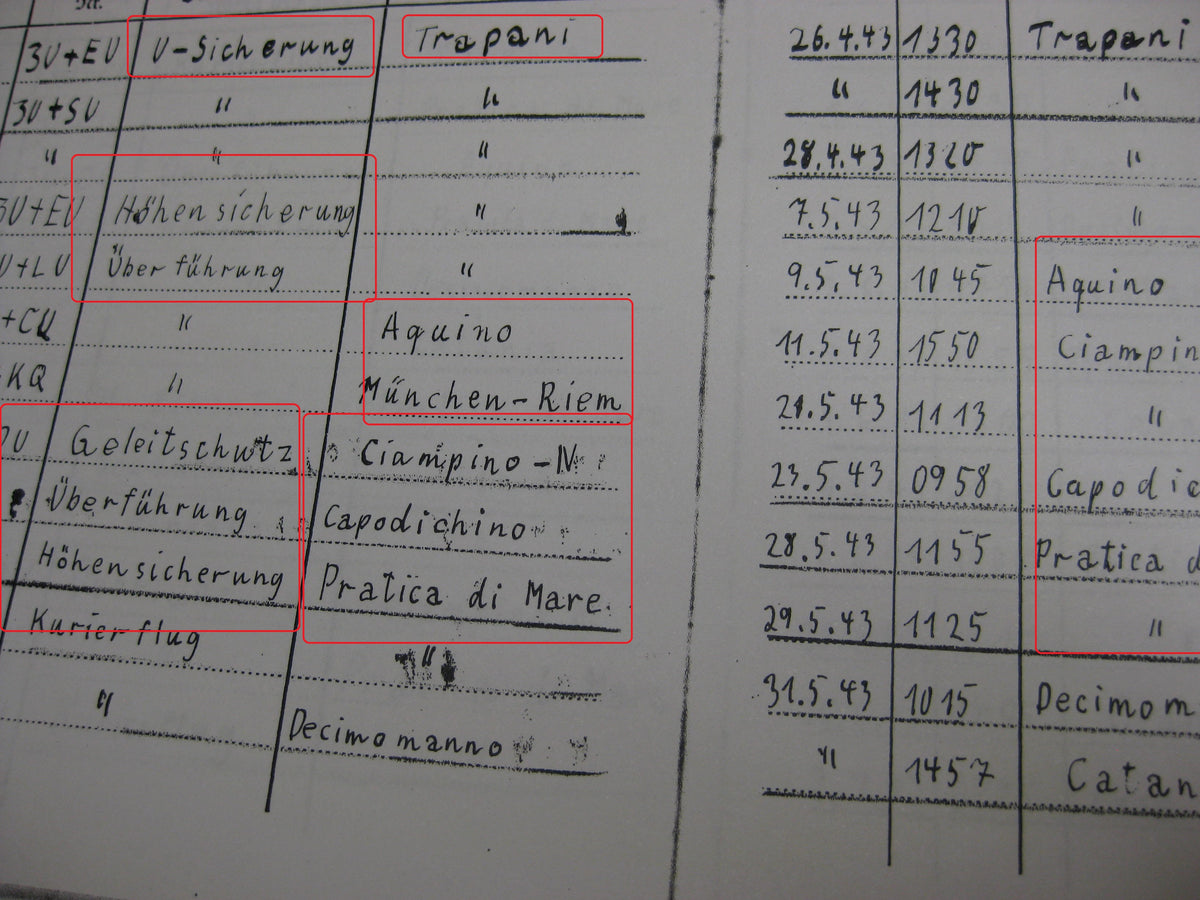 3U+EU U-Sicherung Trapani 26.4.43 1330 Trapani
3U+SU " " " 1430 "
" " " 28.4.43 1320 "
3U+EU Höhensicherung " 7.5.43 1210 "
U+LU Überführung " 9.5.43 1045 Aquino
+CU " Aquino 11.5.43 1550 Ciampin
KQ " München-Riem 21.5.43 1113 "
U Geleitschutz Ciampino-N 23.5.43 0958 Capodic
Überführung Capodichino 28.5.43 1155 Pratica d
Höhensicherung Pratica di Mare. 29.5.43 1125 "
Kurierflug " 31.5.43 1015 Decimom
" Decimomanno " 1457 Catan